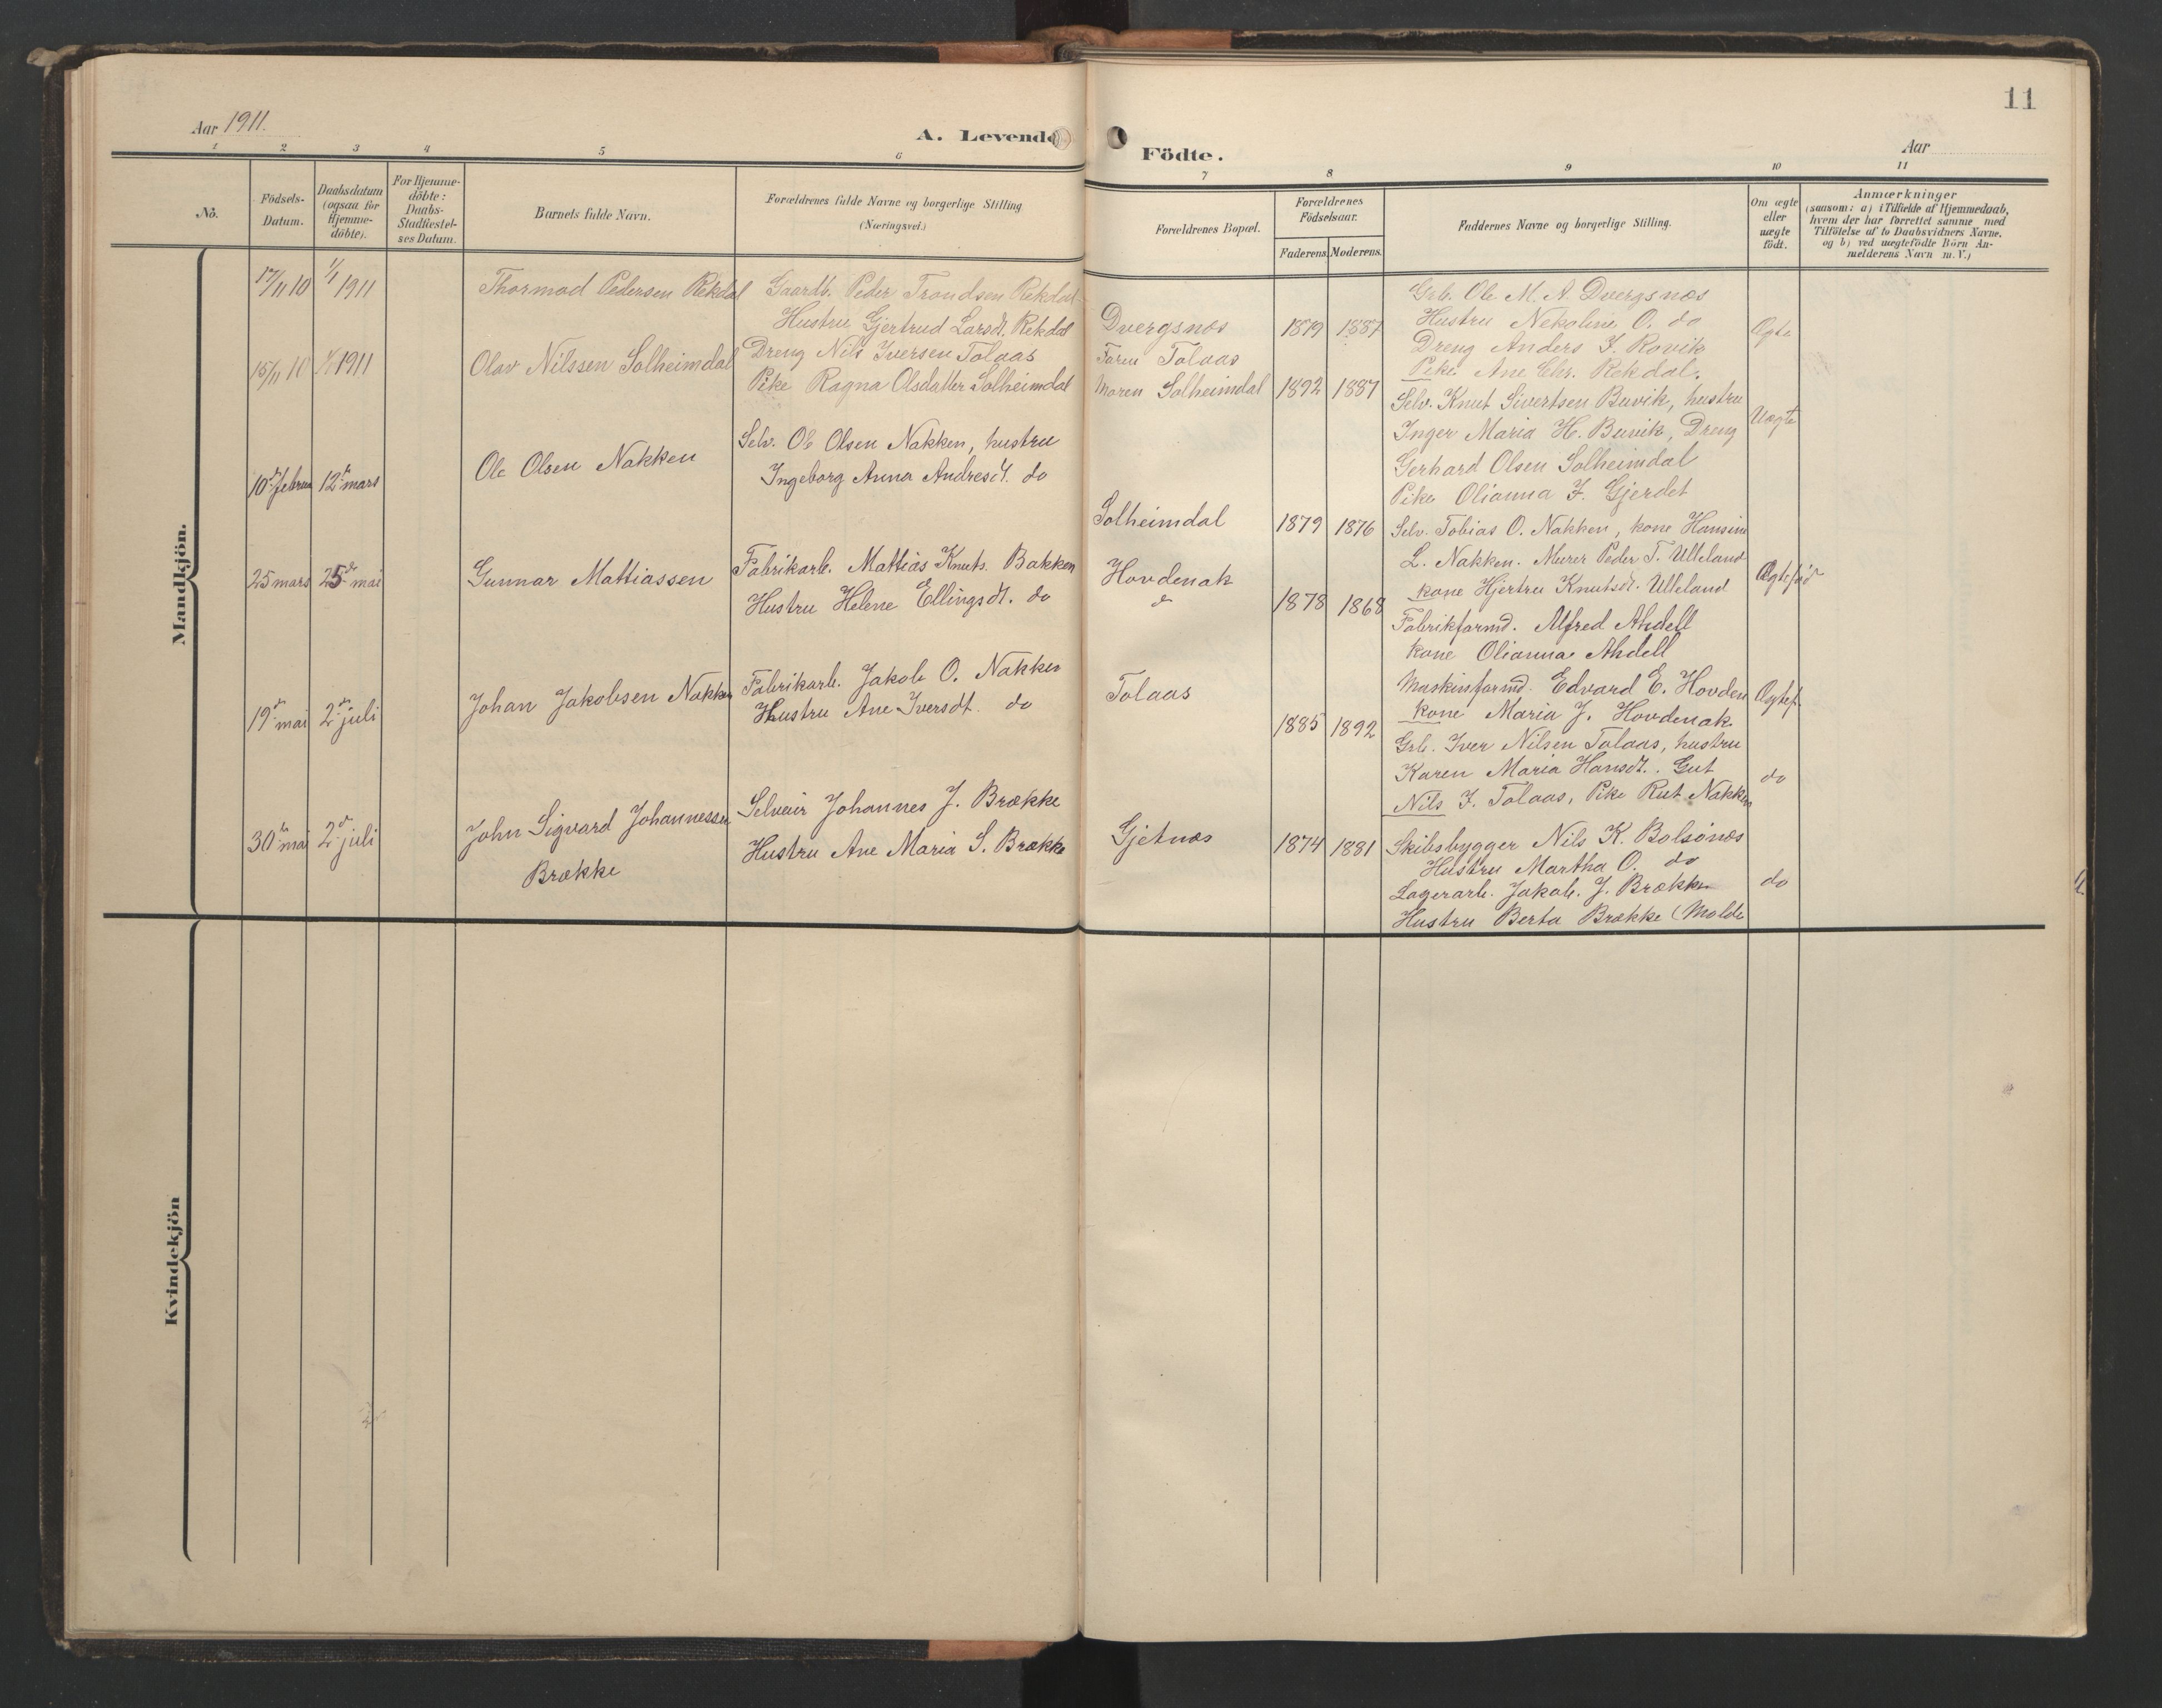 11
Aar 1911.
A. Levende Födte.
Aar
1 2 3 4 5 6 7 8 9 10 11
No.
Födsels-
Datum.
Daabsdatum
(ogsaa for
Hjemme-
döbte).
For Hjemme-
döbte:
Daabs-
Stadfæstel-
ses Datum.
Barnets fulde Navn.
Forældrenes fulde Navne og borgerlige Stilling
(Næringsvei.)
Forældrenes Bopæl.
Forældrenes
Födselsaar.
Faderens. Moderens.
Faddernes Navne og borgerlige Stilling.
Om ægte
eller
uægte
födt.
Anmærkninger
(saasom: a) i Tilfælde af Hjemmedaab,
hvem der har forrettet samme med
Tilföielse af to Daabsvidners Navne,
og b) ved uægtefödte Börn An-
melderens Navn m. V.)
Mandkjön.
17/11 10 1/1 1911 Thormod Pedersen Rekdal
Gaardb. Peder Trondsen Rekdal
Hustru Gjertrud Larsdt. Rekdal
Dvergsnæs 1879 1887
Grb. Ole M. A. Dvergsnæs
Hustru Nekoline O. do
Dreng Anders J. Rovik
Pike Ane Chr. Rekdal.
Ægte
15/11 10 1/1 1911 Olav Nilssen Solheimdal
Dreng Nils Iversen Tolaas
Pike Ragna Olsdatter Solheimdal
Faren Tolaas
Moren Solheimdal 1892 1887
Selv. Knut Sivertsen Buvik, hustru
Inger Maria H. Buvik, Dreng
Gerhard Olsen Solheimdal
Pike Olianna J. Gjerdet
Uægte
10de februar 12te mars Ole Olsen Nakken
Selv. Ole Olsen Nakken, hustru
Ingeborg Anna Andresdt. do
Solheimdal 1879 1876
Selv. Tobias O. Nakken, kone Hansine
L. Nakken. Murer Peder T. Ulleland
kone Hjertru Knutsdt. Ulleland
Ægtefød
25 mars 25de mai Gunnar Mattiassen
Fabrikarb. Mattias Knuts. Bakken
Hustru Helene Ellingsdt. do
Hovdenak
do 1878 1868
Fabrikformd. Alfred Ahdell
kone Olianna Ahdell
Maskinformd. Edvard E. Hovden
kone Maria J. Hovdenak
Ægtef.
19de mai 2den juli Johan Jakobsen Nakken
Fabrikarb. Jakob O. Nakken
Hustru Ane Iversdt. do
Tolaas 1885 1892
Grb. Iver Nilsen Tolaas, hustru
Karen Maria Hansdt. Gut
Nils J. Tolaas, Pike Rut Nakken
do
30te mai 2de juli John Sigvard Johannessen
Brække
Selveier Johannes J. Brække
Hustru Ane Maria S. Brække
Gjetnæs 1874 1881
Skibsbygger Nils K. Bolsönæs
Hustru Martha O. do
Lagerarb. Jakob. J. Brække
Hustru Berta Brække (Molde
do
Kvindekjön